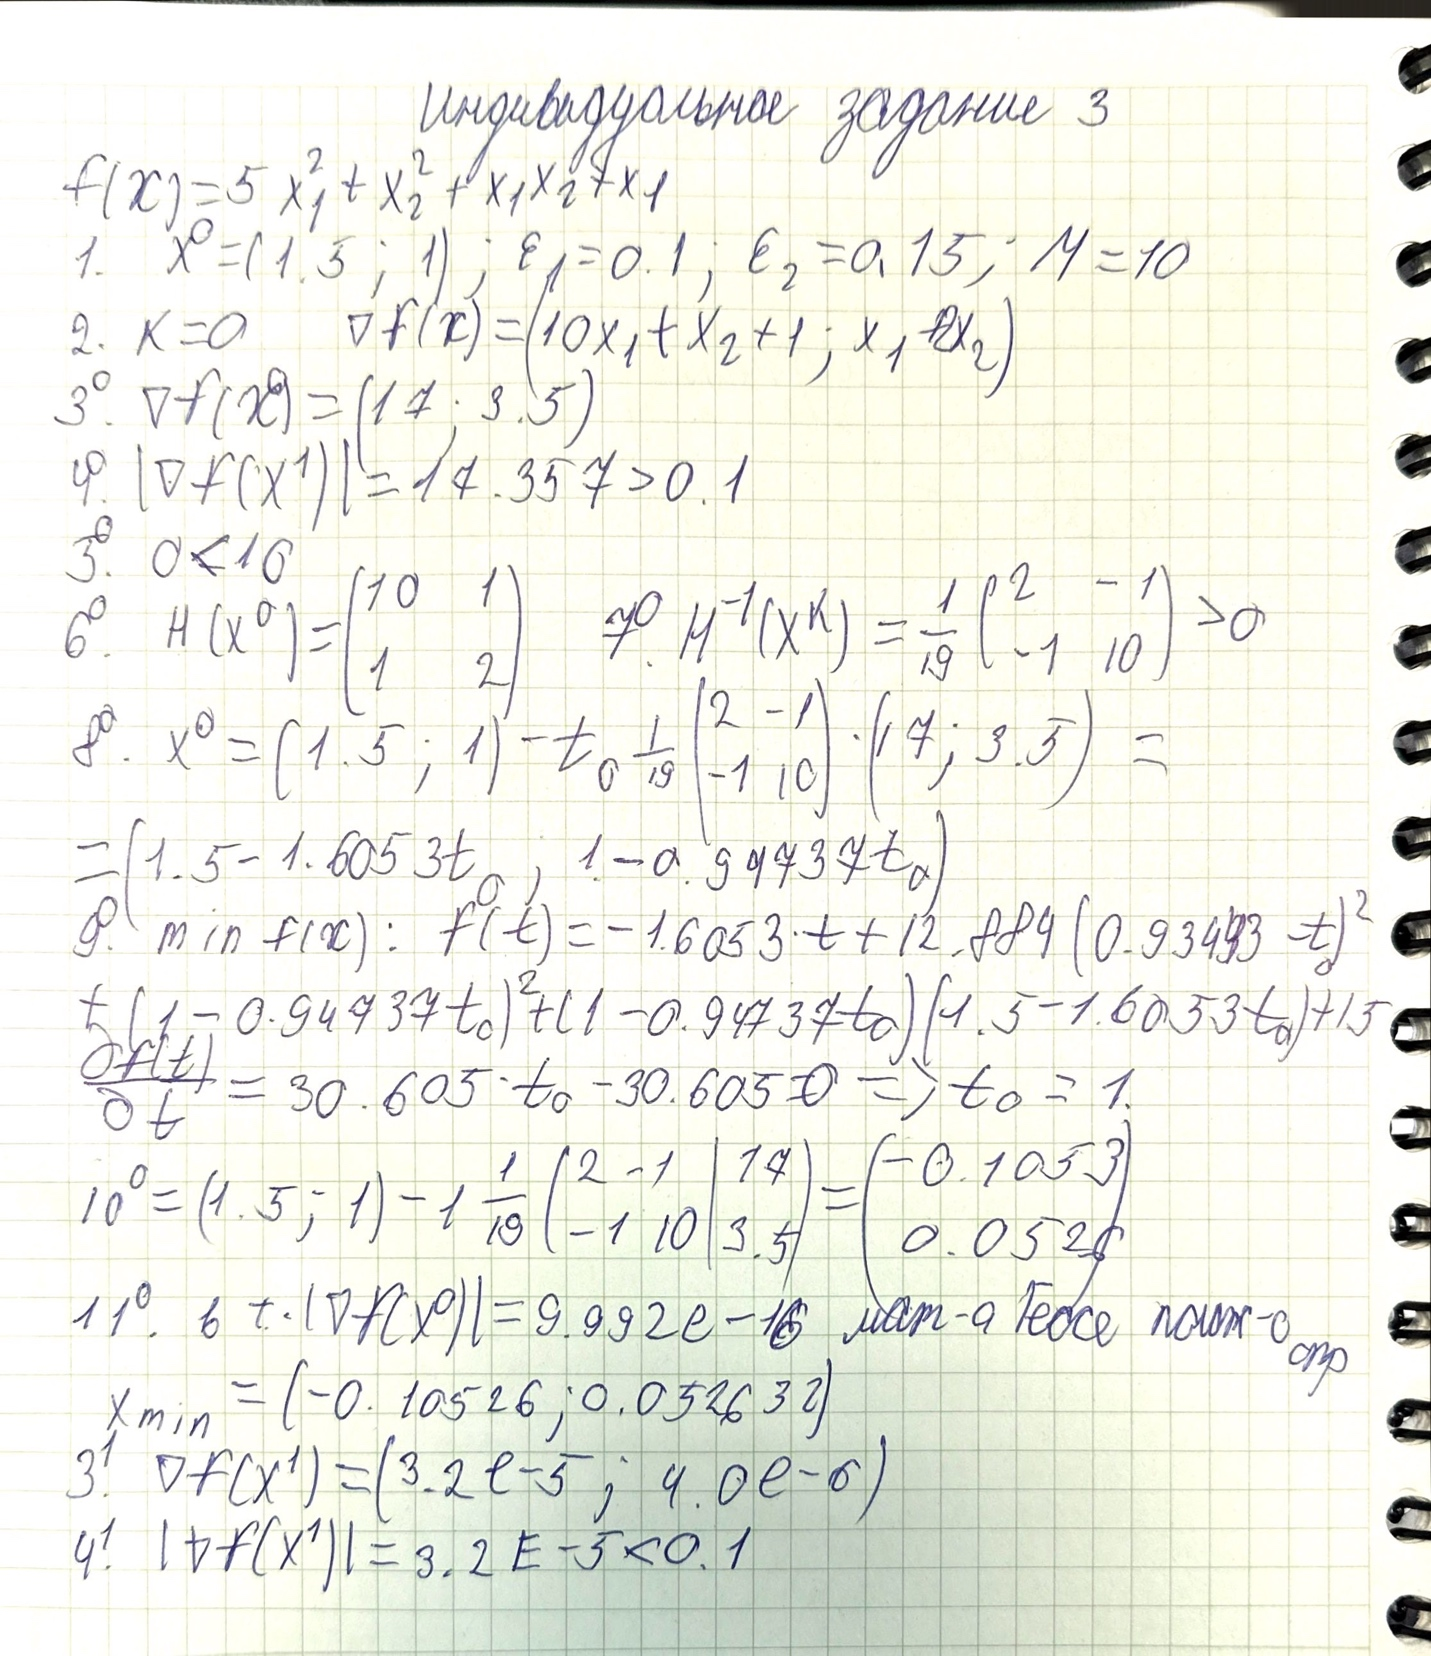 Индивидуальное задание 3
f(x)=5x₁²+x₂²+x₁x₂+x₁
1. x⁰=(1.5; 1); ε₁=0.1; ε₂=0.15; M=10
2. K=0 ∇f(x)=(10x₁+x₂+1; x₁+2x₂)
3⁰. ∇f(x⁰)=(17; 3.5)
4⁰. |∇f(x¹)|=17.357>0.1
5⁰. 0<10
6⁰. H(x⁰)=(10 1; 1 2) 7⁰. H⁻¹(xᴷ)=1/19(2 -1; -1 10)>0
8⁰. x⁰=(1.5; 1)-t₀ 1/19(2 -1; -1 10)·(17; 3.5)=
=(1.5-1.6053t₀; 1-0.94737t₀)
9⁰. min f(x): f(t)=-1.6053·t+12.884(0.93443-t₀)²
+(1-0.94737t₀)²+(1-0.94737t₀)(1.5-1.6053t₀)+1.5
∂f(t)/∂t=30.605·t₀-30.605=0 => t₀=1.
10⁰=(1.5; 1)-1 1/19(2 -1 | 17; -1 10 | 3.5)=(-0.1053; 0.0526)
11⁰. в т. |∇f(x⁰)|=9.992e-16 мат-а Гессе полож-о опр
x min=(-0.10526; 0.052632)
3¹. ∇f(x¹)=(3.2e-5; 4.0e-6)
4¹. |∇f(x¹)|=3.2E-5<0.1